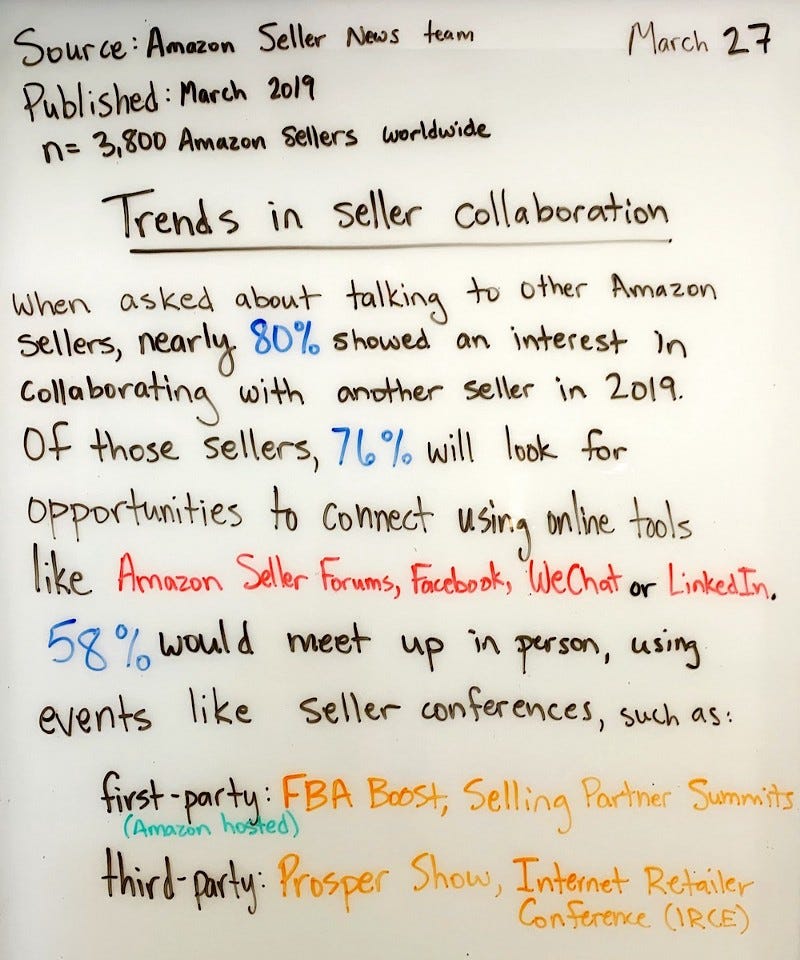 Source: Amazon Seller News team
March 27
Published: March 2019
n= 3,800 Amazon Sellers worldwide
Trends in seller collaboration
When asked about talking to other Amazon
sellers, nearly 80% showed an interest in
collaborating with another seller in 2019.
Of those sellers, 76% will look for
opportunities to connect using online tools
like Amazon Seller Forums, Facebook, WeChat or LinkedIn.
58% would meet up in person, using
events like seller conferences, such as:
first-party: FBA Boost, Selling Partner Summits
(Amazon hosted)
third-party: Prosper Show, Internet Retailer
Conference (IRCE)